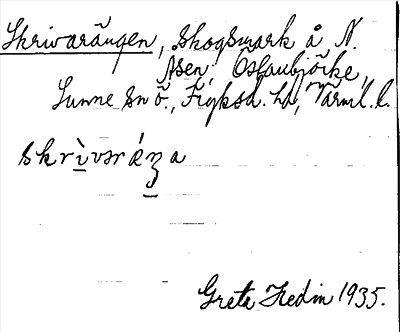 Skrivarängen, skogsmark å N.
Åsen, Östanbjörke,
Sunne sn ö., Fryksd. hd, Värml. l.
skrìvsrǽŋa
Greta Hedin 1935.